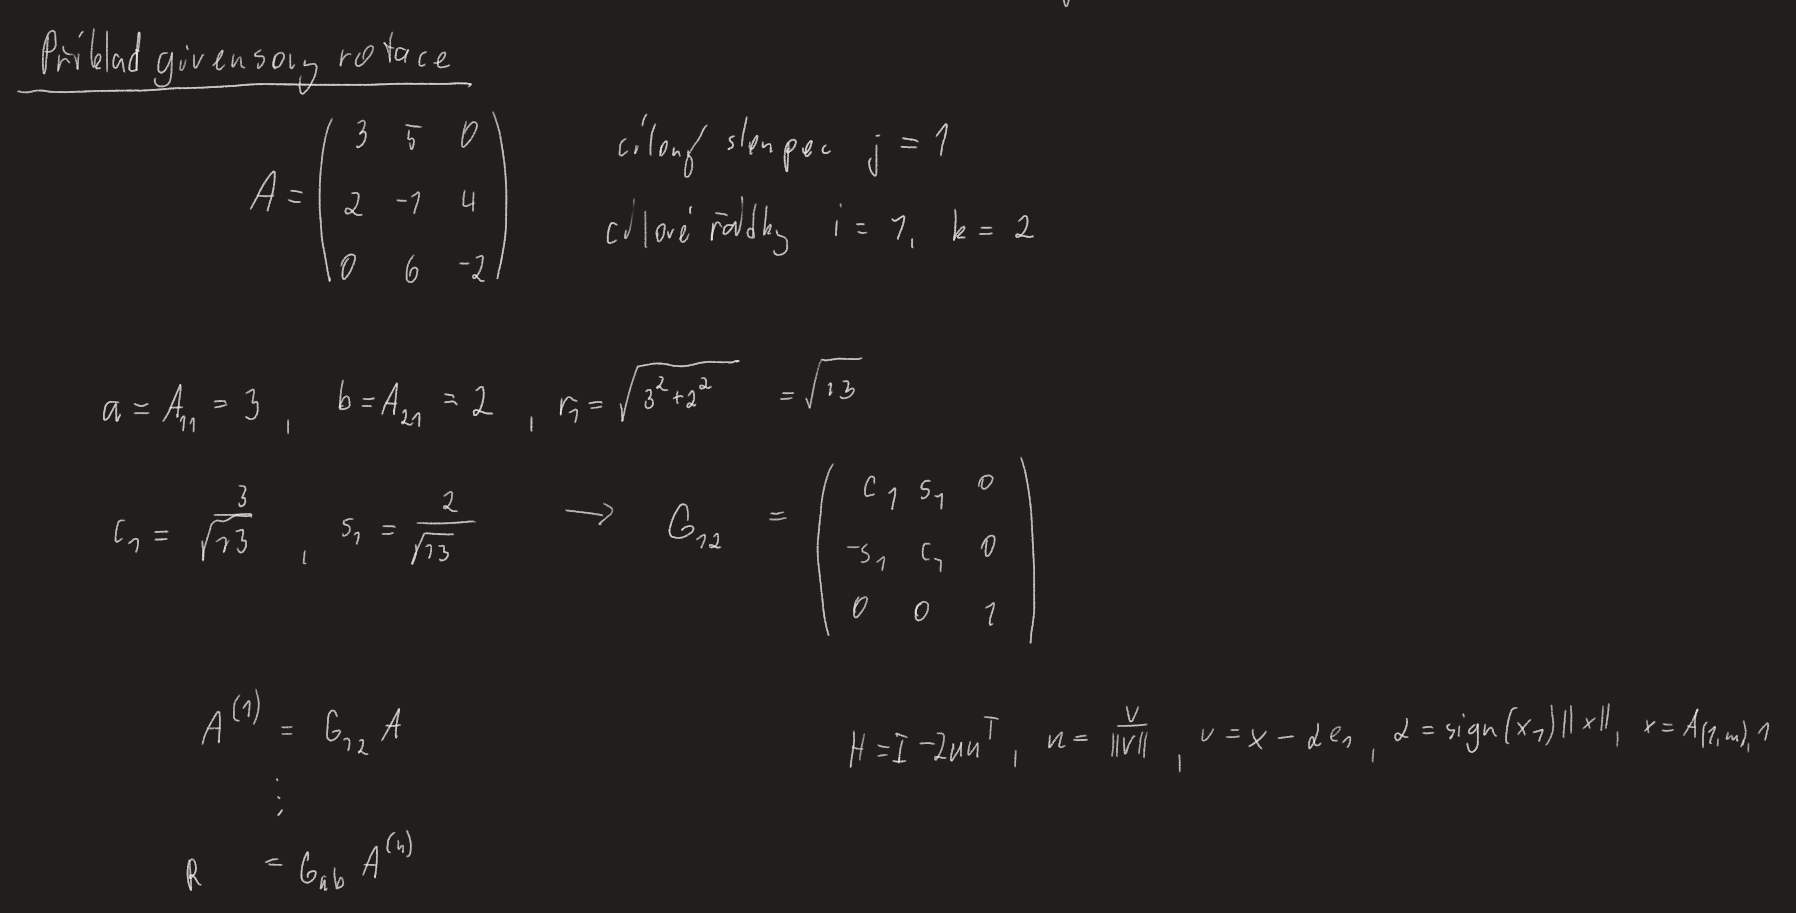 Příklad givensovy rotace
A = ( 3 5 0
2 -1 4
0 6 -2 )
cílový sloupec j = 1
cílové řádky i = 1, k = 2
a = A₁₁ = 3 , b = A₂₁ = 2 , r₁ = √(3² + 2²) = √13
c₁ = 3/√13 , s₁ = 2/√13 → G₁₂ = ( c₁ s₁ 0
-s₁ c₁ 0
0 0 1 )
A⁽¹⁾ = G₁₂ A
⋮
R = G_ab A⁽ⁿ⁾
H = I - 2uuᵀ , u = v/||v|| , v = x - αe₁ , α = sign(x₁)||x|| , x = A_(1,m),1